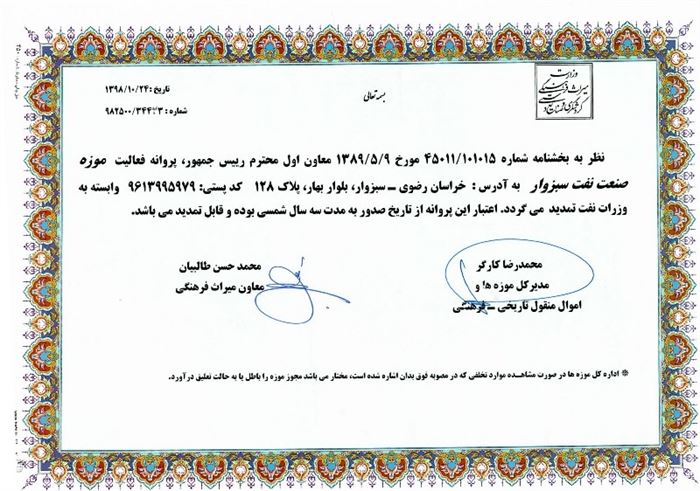 وزارت
میراث فرهنگی
گردشگری و صنایع دستی
بسمه تعالی
تاریخ: ۱۳۹۸/۱۰/۲۴
شماره: ۹۸۲۵۰۰/۳۴۴۳۳
نظر به بخشنامه شماره ۴۵۰۱۱/۱۰۱۰۱۵ مورخ ۱۳۸۹/۵/۹ معاون اول محترم رییس جمهور، پروانه فعالیت موزه
صنعت نفت سبزوار به آدرس: خراسان رضوی – سبزوار، بلوار بهار، پلاک ۱۲۸ کد پستی: ۹۶۱۳۹۹۵۹۷۹ وابسته به
وزرات نفت تمدید می گردد. اعتبار این پروانه از تاریخ صدور به مدت سه سال شمسی بوده و قابل تمدید می باشد.
محمدرضا کارگر
مدیرکل موزه ها و
اموال منقول تاریخی – فرهنگی
محمد حسن طالبیان
معاون میراث فرهنگی
※ اداره کل موزه ها در صورت مشاهده موارد تخلفی که در مصوبه فوق بدان اشاره شده است، مختار می باشد مجوز موزه را باطل یا به حالت تعلیق درآورد.